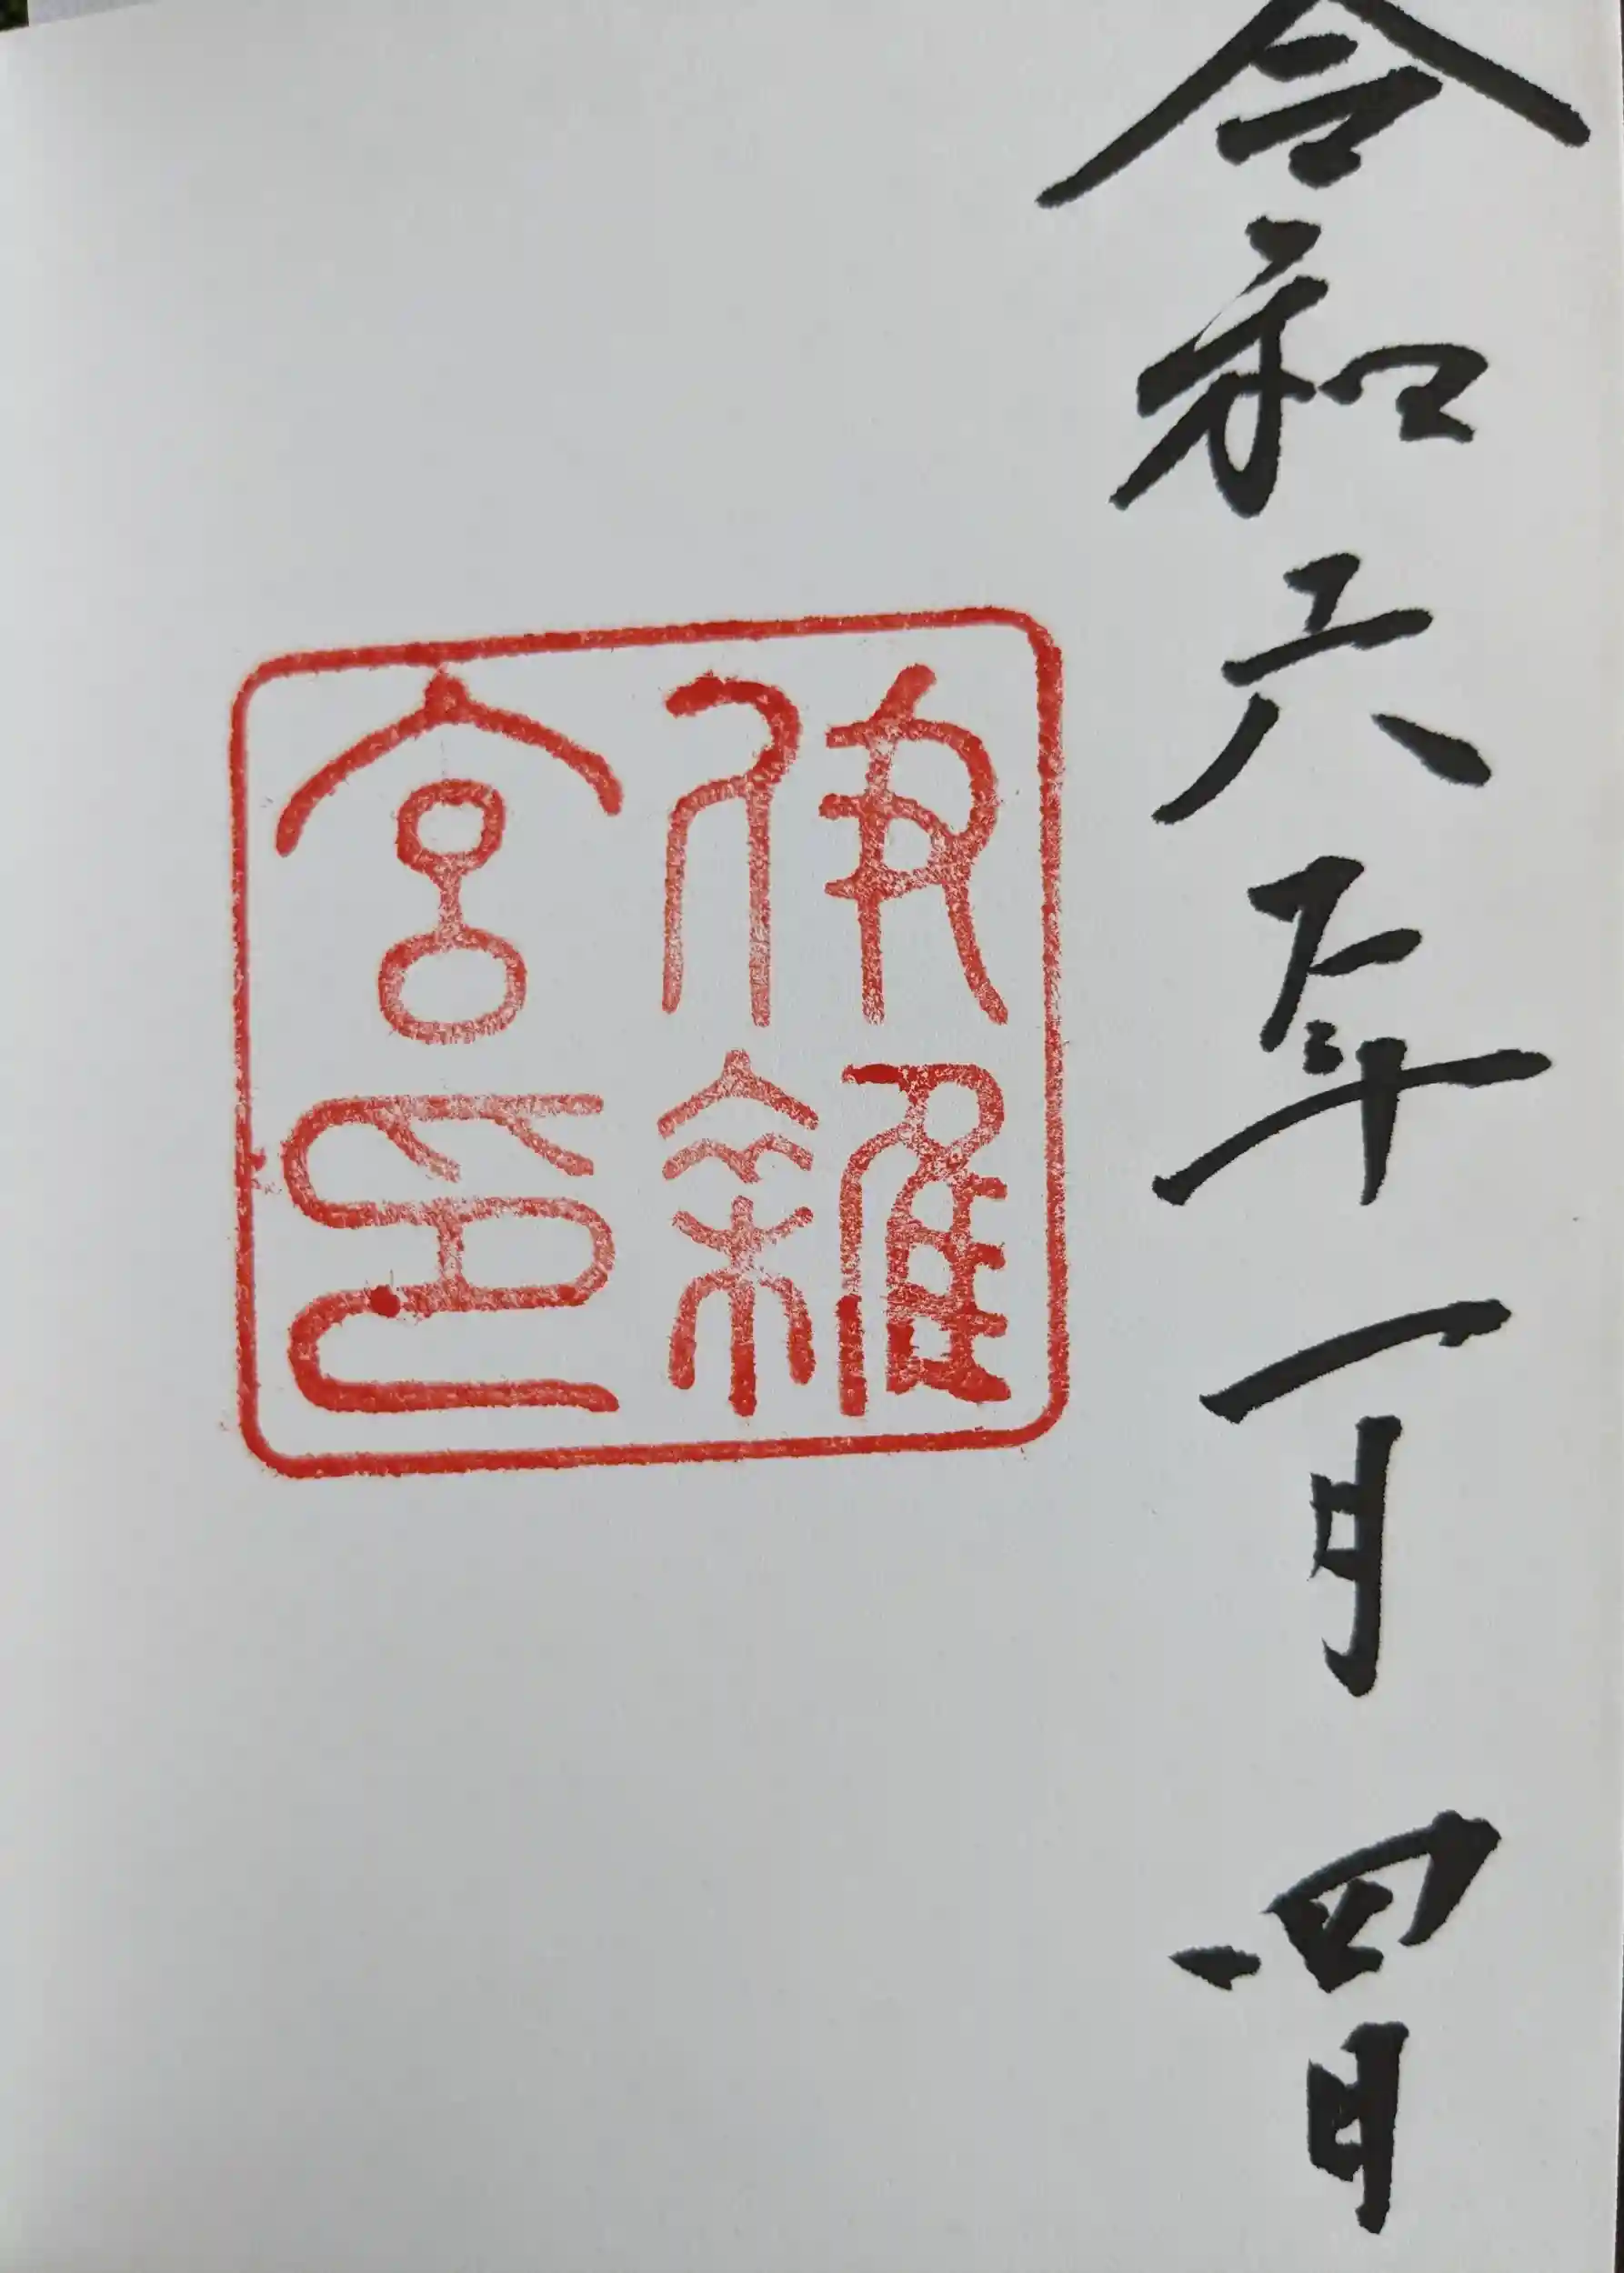 令和六年一月四日
伊雜
宮印